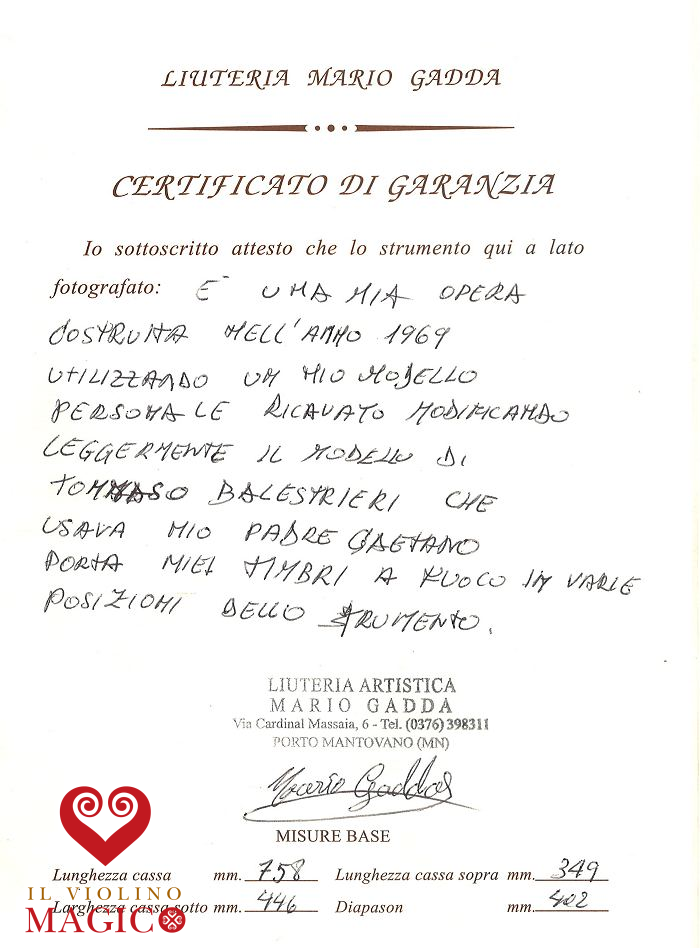 LIUTERIA MARIO GADDA
CERTIFICATO DI GARANZIA
Io sottoscritto attesto che lo strumento qui a lato
fotografato: È UNA MIA OPERA
COSTRUITA NELL'ANNO 1969
UTILIZZANDO UN MIO MODELLO
PERSONALE RICAVATO MODIFICANDO
LEGGERMENTE IL MODELLO DI
TOMMASO BALESTRIERI CHE
USAVA MIO PADRE GAETANO
PORTA MIEI TIMBRI A FUOCO IN VARIE
POSIZIONI DELLO STRUMENTO.
LIUTERIA ARTISTICA
MARIO GADDA
Via Cardinal Massaia, 6 - Tel. (0376) 398311
PORTO MANTOVANO (MN)
Mario Gadda
MISURE BASE
Lunghezza cassa mm. 758 Lunghezza cassa sopra mm. 349
IL VIOLINO
Larghezza cassa sotto mm. 446 Diapason mm. 402
MAGICO